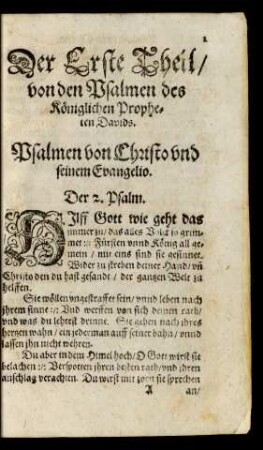 1
Der Erste Theil/
von den Psalmen des
Königlichen Prophe-
ten Davids.
Psalmen von Christo vnd
seinem Evangelio.
Der 2. Psalm.
HIlff Gott wie geht das
immer zu/ das alles Volck so grim-
met :/: Fürsten vnnd König all ge-
mein/ mit eins sind sie gesinnet.
Wider zu streben deiner Hand/ vñ
Christo den du hast gesandt/ der gantzen Welt zu
helffen.
Sie wöllen vngestrafft sein/ vnnd leben nach
jhrem sinne :/: Vnd werffen von sich deinen rath/
vnd was du lehrest drinne. Sie gehen nach jhres
hertzen wahn/ ein jederman auff seiner bahn/ vnnd
lassen jhn nicht wehren.
Du aber in dem Himel hoch/ O Gott wirst sie
belachen :/: Verspotten jhren besten rath/ vnd jhren
anschlag verachten. Du wirst mit zorn sie sprechen
A an/